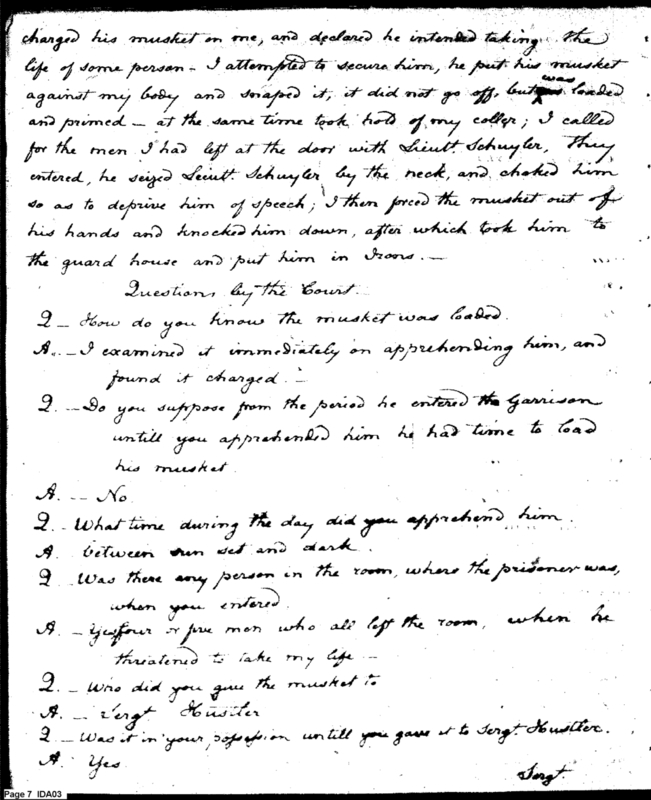 charged his musket on me, and declared he intended taking the
life of some person - I attempted to secure him, he put his musket
against my body and snaped it, it did not go off, but was loaded
and primed - at the same time took hold of my coller; I called
for the men I had left at the door with Lieut. Schuyler, they
entered, he seized Lieut. Schuyler by the neck, and choked him
so as to deprive him of speech; I then forced the musket out of
his hands and knocked him down, after which took him to
the guard house and put him in Irons. -
Questions by the Court.
Q - How do you know the musket was loaded.
A. - I examined it immediately on apprehending him, and
found it charged. -
Q. - Do you suppose from the period he entered the Garrison
untill you apprehended him he had time to load
his musket.
A. - No
Q. - What time during the day did you apprehend him.
A. between sun set and dark.
Q. Was there any person in the room, where the prisoner was,
when you entered.
A. - Yes four or five men who all left the room, when he
threatened to take my life -
Q. - Who did you give the musket to
A. - Sergt. Hustler
Q. - Was it in your possession untill you gave it to Sergt. Hustler.
A. Yes
Sergt.
Page 7 IDA03